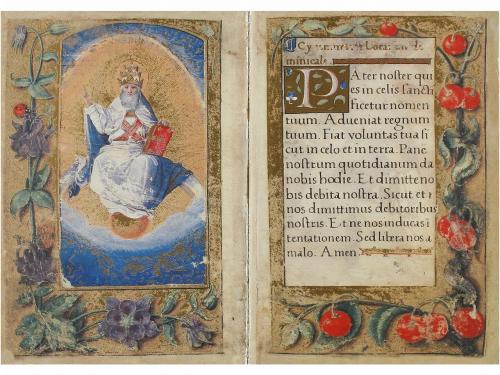 minicale.
PAter noster qui
es in celis sancti
ficetur nomen
tuum. Adueniat regnum
tuum. Fiat voluntas tua si
cut in celo et in terra. Pane
nostrum quotidianum da
nobis hodie. Et dimitte no
bis debita nostra. Sicut et n
nos dimittimus debitoribus
nostris. Et ne nos inducas i
tentationem. Sed libera nos a
malo. Amen.